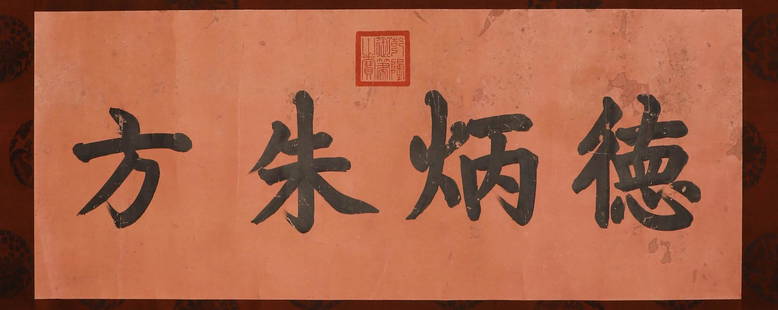 德炳朱方
乾隆御筆之寶